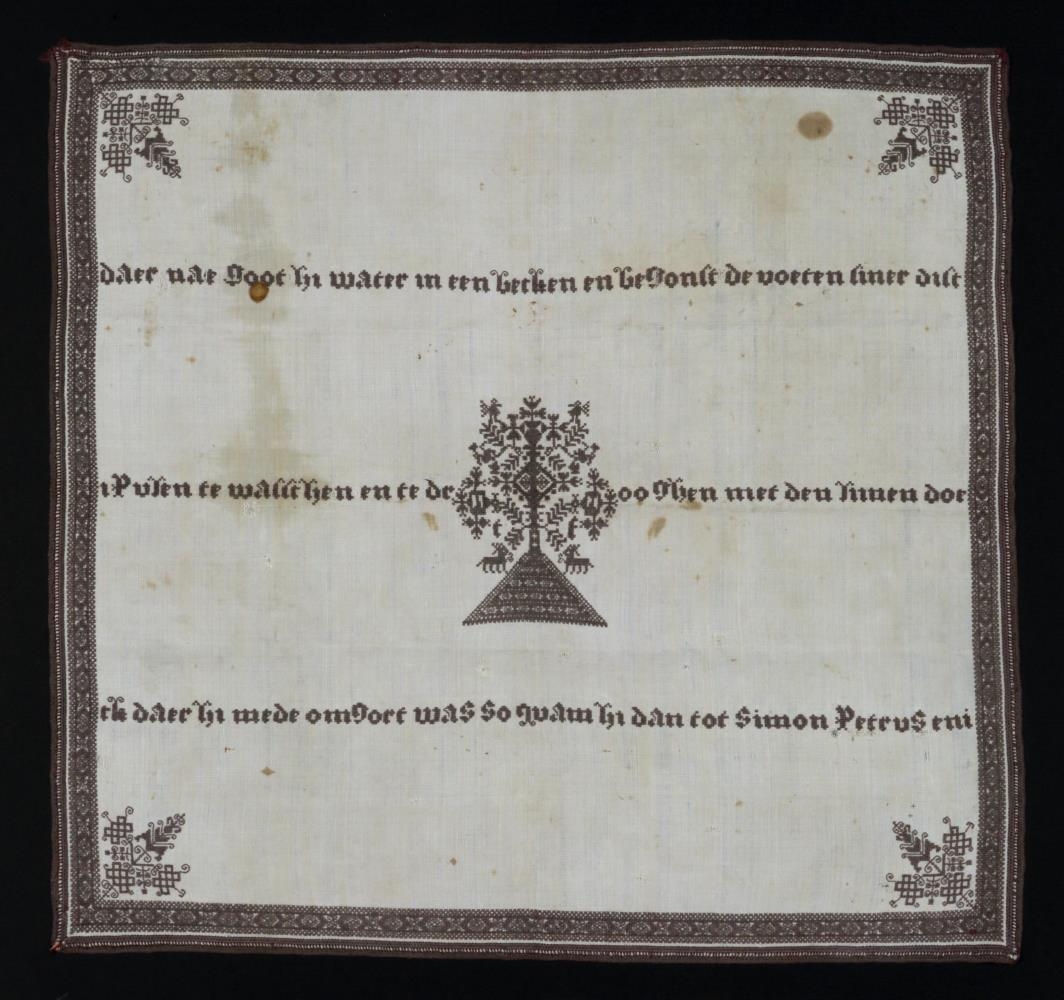 daer nae goot hi water in een becken en begonst de voeten siner disc
ipvlen te wasschen en te dr oo ghen met den linnen doe
t t
ck daer hi mede omgort was so qvam hi dan tot simon Petrvs eni